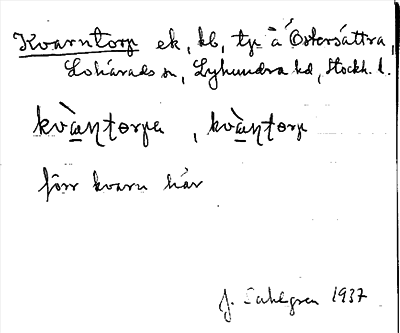 Kvarntorp ek, lb, tp å Östersättra,
Lohärads sn, Lyhundra hd, Stockh. l.
kvà̲ɳtorpa, kvà̲ɳtorp
förr kvarn här
J. Sahlgren 1937